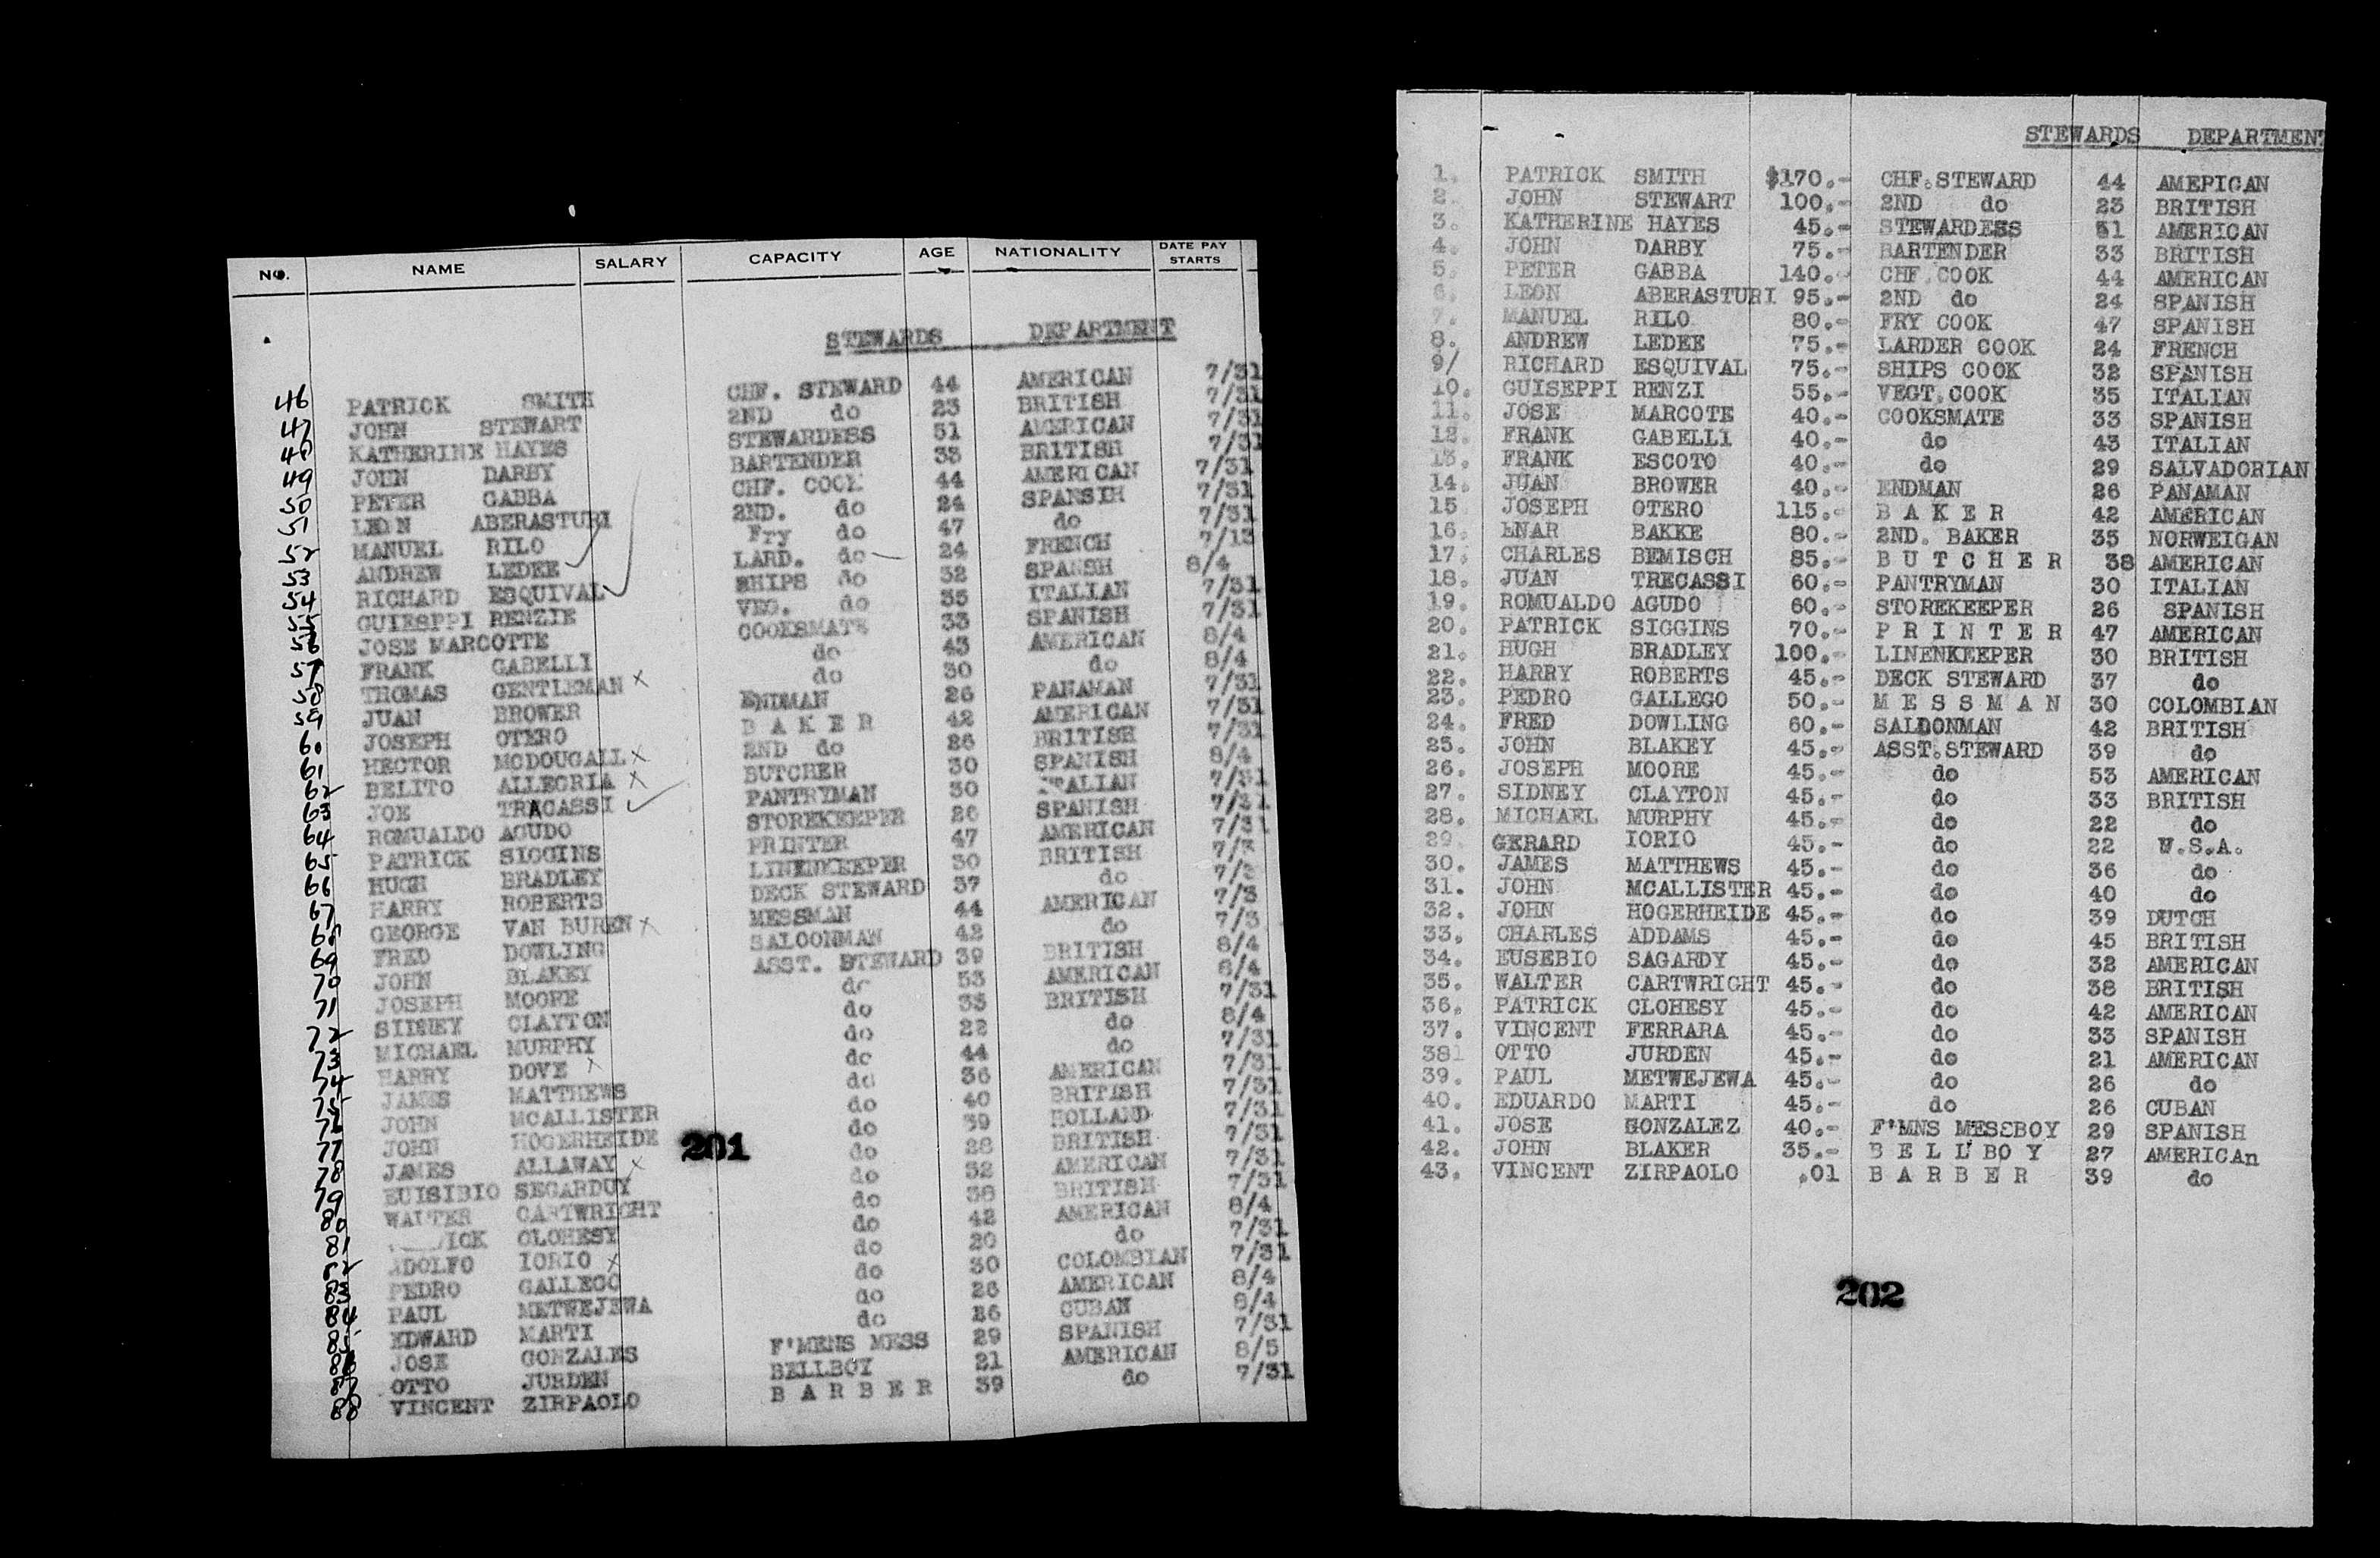 NO. NAME SALARY CAPACITY AGE NATIONALITY DATE PAY STARTS
STEWARDS DEPARTMENT
46 PATRICK SMITH CHF. STEWARD 44 AMERICAN 7/31
47 JOHN STEWART 2ND do 23 BRITISH 7/31
48 KATHERINE HAYES STEWARDESS 51 AMERICAN 7/31
49 JOHN DARBY BARTENDER 33 BRITISH 7/31
50 PETER GABBA CHF. COOK 44 AMERICAN 7/31
51 LEON ABERASTURI 2ND. do 24 SPANSIH 7/31
52 MANUEL RILO Fry do 47 do 7/31
53 ANDREW LEDEE LARD. do 24 FRENCH 7/13
54 RICHARD ESQUIVAL SHIPS do 32 SPANSH 8/4
55 GUIESPPI RENZIE VEG. do 35 ITALIAN 7/31
56 JOSE MARCOTTE COOKSMATE 33 SPANISH 7/31
57 FRANK GABELLI do 43 AMERICAN 8/4
58 THOMAS GENTLEMAN X do 30 do 8/4
59 JUAN BROWER ENDMAN 26 PANAMAN 7/31
60 JOSEPH OTERO B A K E R 42 AMERICAN 7/31
61 HECTOR MCDOUGALL X 2ND do 26 BRITISH 7/31
62 BELITO ALLEGRIA X BUTCHER 30 SPANISH 8/4
63 JOE TRACASSI PANTRYMAN 30 ITALIAN 7/31
64 ROMUALDO AGUDO STOREKEEPER 26 SPANISH 7/31
65 PATRICK SIGGINS PRINTER 47 AMERICAN 7/31
66 HUGH BRADLEY LINENKEEPER 30 BRITISH 7/3
67 HARRY ROBERTS DECK STEWARD 37 do 7/3
68 GEORGE VAN BUREN X MESSMAN 44 AMERICAN 7/3
69 FRED DOWLING SALOONMAN 42 do 7/3
70 JOHN BLAKEY ASST. STEWARD 39 BRITISH 8/4
71 JOSEPH MOORE do 53 AMERICAN 8/4
72 SIDNEY CLAYTON do 33 BRITISH 7/31
73 MICHAEL MURPHY do 22 do 8/4
74 HARRY DOVE X do 44 do 7/31
75 JAMES MATTHEWS do 36 AMERICAN 7/31
76 JOHN MCALLISTER do 40 BRITISH 7/31
77 JOHN HOGERHEIDE do 39 HOLLAND 7/31
78 JAMES ALLAWAY X do 28 BRITISH 7/31
79 EUISIBIO SEGARDUY do 32 AMERICAN 7/31
80 WALTER CARTWRIGHT do 38 BRITISH 7/31
81 CLOHESY do 42 AMERICAN 8/4
82 ADOLFO IORIO X do 20 do 7/31
83 PEDRO GALLEGO do 30 COLOMBIAN 7/31
84 PAUL METWEJEWA do 26 AMERICAN 8/4
85 EDWARD MARTI do 26 CUBAN 8/4
86 JOSE GONZALES F'MENS MESS 29 SPANISH 7/31
87 OTTO JURDEN BELLBOY 21 AMERICAN 8/5
88 VINCENT ZIRPAOLO B A R B E R 39 do 7/31
201
STEWARDS DEPARTMENT
1. PATRICK SMITH $170.- CHF.STEWARD 44 AMERICAN
2. JOHN STEWART 100.- 2ND do 23 BRITISH
3. KATHERINE HAYES 45.- STEWARDESS 51 AMERICAN
4. JOHN DARBY 75.- BARTENDER 33 BRITISH
5. PETER GABBA 140.- CHF.COOK 44 AMERICAN
6. LEON ABERASTURI 95.- 2ND do 24 SPANISH
7. MANUEL RILO 80.- FRY COOK 47 SPANISH
8. ANDREW LEDEE 75.- LARDER COOK 24 FRENCH
9/ RICHARD ESQUIVAL 75.- SHIPS COOK 32 SPANISH
10. GUISEPPI RENZI 55.- VEGT.COOK 35 ITALIAN
11. JOSE MARCOTE 40.- COOKSMATE 33 SPANISH
12. FRANK GABELLI 40.- do 43 ITALIAN
13. FRANK ESCOTO 40.- do 29 SALVADORIAN
14. JUAN BROWER 40.- ENDMAN 26 PANAMAN
15 JOSEPH OTERO 115.- B A K E R 42 AMERICAN
16. ENAR BAKKE 80.- 2ND. BAKER 35 NORWEIGAN
17. CHARLES BEMISCH 85.- B U T C H E R 38 AMERICAN
18. JUAN TRECASSI 60.- PANTRYMAN 30 ITALIAN
19. ROMUALDO AGUDO 60.- STOREKEEPER 26 SPANISH
20. PATRICK SIGGINS 70.- P R I N T E R 47 AMERICAN
21. HUGH BRADLEY 100.- LINENKEEPER 30 BRITISH
22. HARRY ROBERTS 45.- DECK STEWARD 37 do
23. PEDRO GALLEGO 50.- M E S S M A N 30 COLOMBIAN
24. FRED DOWLING 60.- SALOONMAN 42 BRITISH
25. JOHN BLAKEY 45.- ASST.STEWARD 39 do
26. JOSEPH MOORE 45.- do 53 AMERICAN
27. SIDNEY CLAYTON 45.- do 33 BRITISH
28. MICHAEL MURPHY 45.- do 22 do
29. GERARD IORIO 45.- do 22 U.S.A.
30. JAMES MATTHEWS 45.- do 36 do
31. JOHN MCALLISTER 45.- do 40 do
32. JOHN HOGERHEIDE 45.- do 39 DUTCH
33. CHARLES ADDAMS 45.- do 45 BRITISH
34. EUSEBIO SAGARDY 45.- do 32 AMERICAN
35. WALTER CARTWRIGHT 45.- do 38 BRITISH
36. PATRICK CLOHESY 45.- do 42 AMERICAN
37. VINCENT FERRARA 45.- do 33 SPANISH
38 OTTO JURDEN 45.- do 21 AMERICAN
39. PAUL METWEJEWA 45.- do 26 do
40. EDUARDO MARTI 45.- do 26 CUBAN
41. JOSE GONZALEZ 40.- F'MNS MESSBOY 29 SPANISH
42. JOHN BLAKER 35.- B E L L B O Y 27 AMERICAn
43. VINCENT ZIRPAOLO .01 B A R B E R 39 do
202